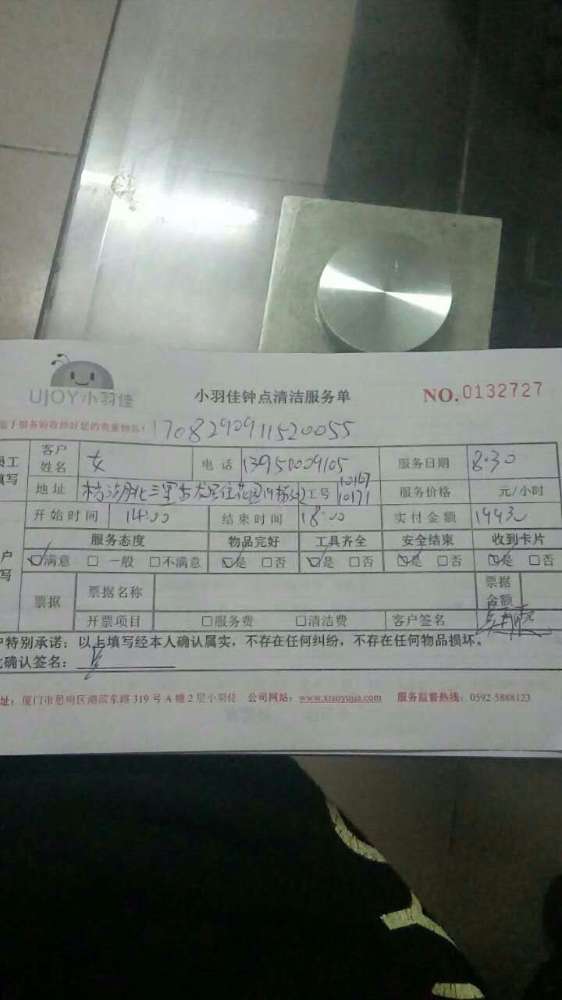 UJOY小羽佳
小羽佳钟点清洁服务单
NO.0132727
1708290911520055
员工填写 客户姓名 女 电话 13950009105 服务日期 8.30
地址 工号 10167 10171 服务价格 元/小时
开始时间 14:00 结束时间 18:00 实付金额
服务态度 物品完好 工具齐全 安全结束 收到卡片
满意 一般 不满意 是 否 是 否 是 否 是 否
票据 票据名称 票据金额
开票项目 服务费 清洁费 客户签名
户特别承诺：以上填写经本人确认属实，不存在任何纠纷，不存在任何物品损坏。
确认签名：
址：厦门市思明区湖滨东路 319 号 A 幢 2 层小羽佳 公司网站：www.xiaoyujia.com 服务监督热线：0592-5888123